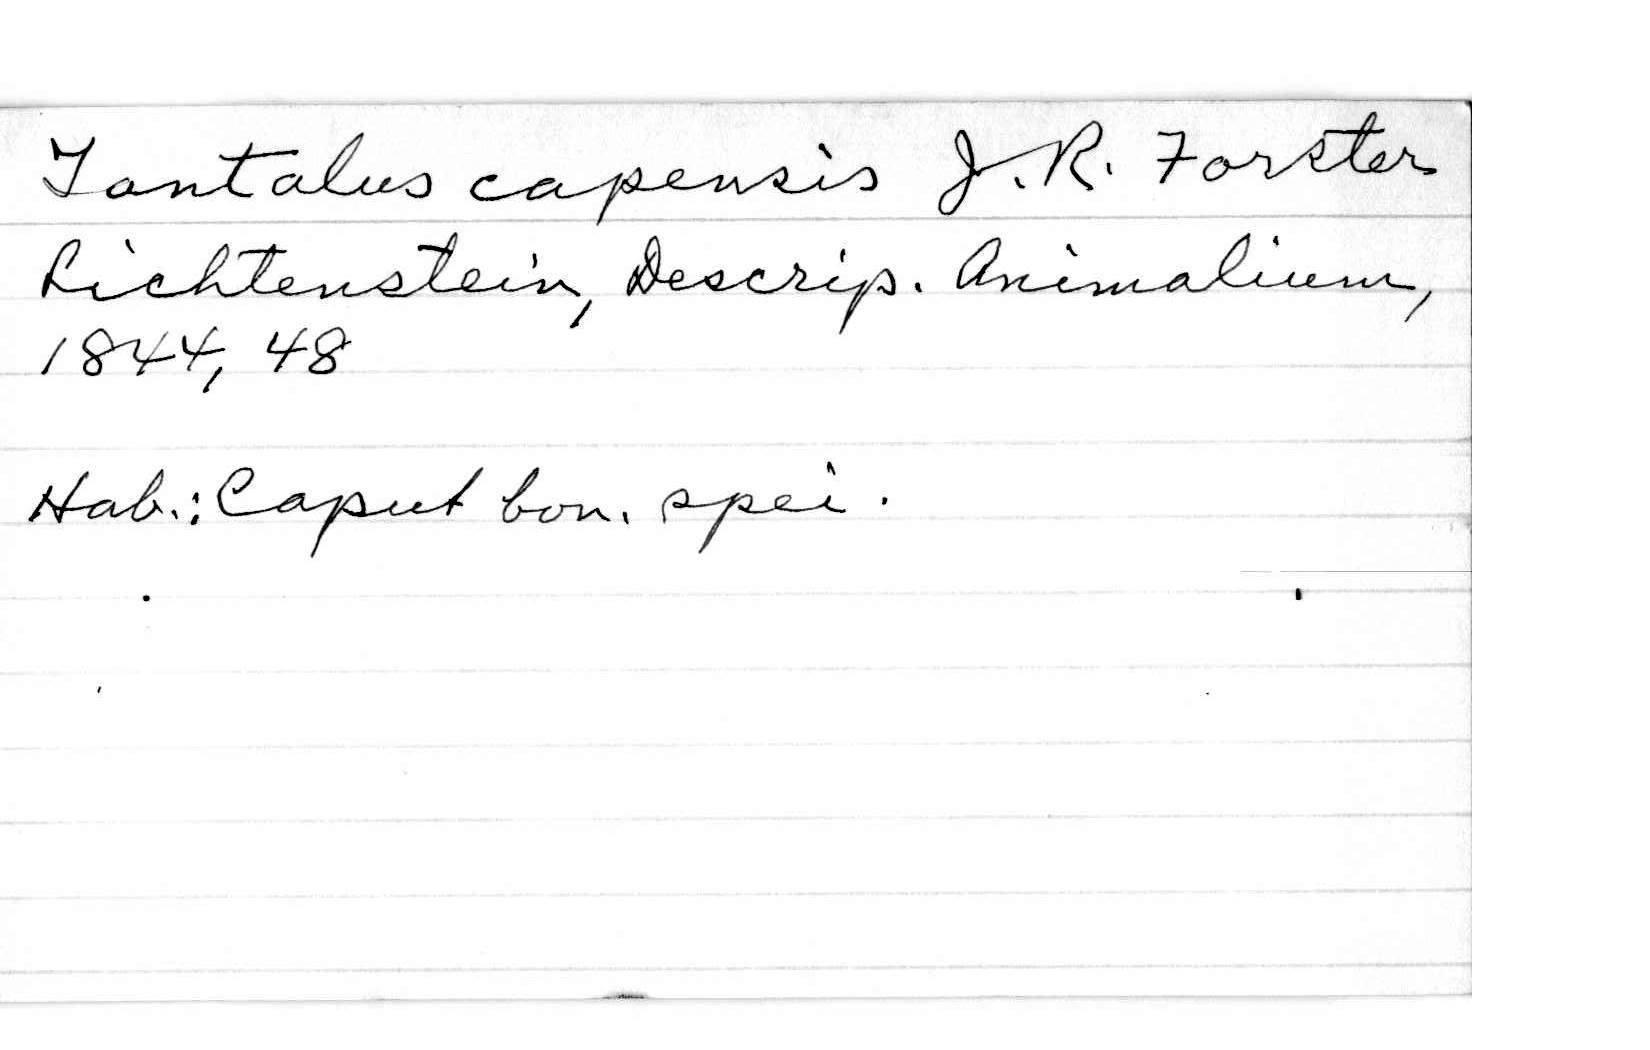 Tantalus capensis J. R. Forster
Lichtenstein, Descrip. Animalium,
1844, 48
Hab.: Caput bon. spei.